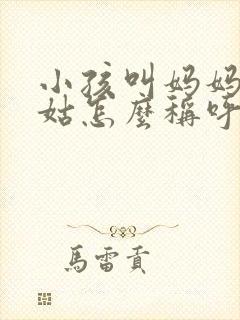 小孩叫妈妈
姑怎麼稱呼
馬雷貢